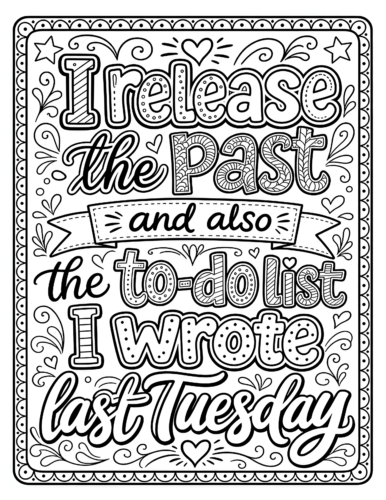 I release
the past
and also
the to-do list
I wrote
last Tuesday